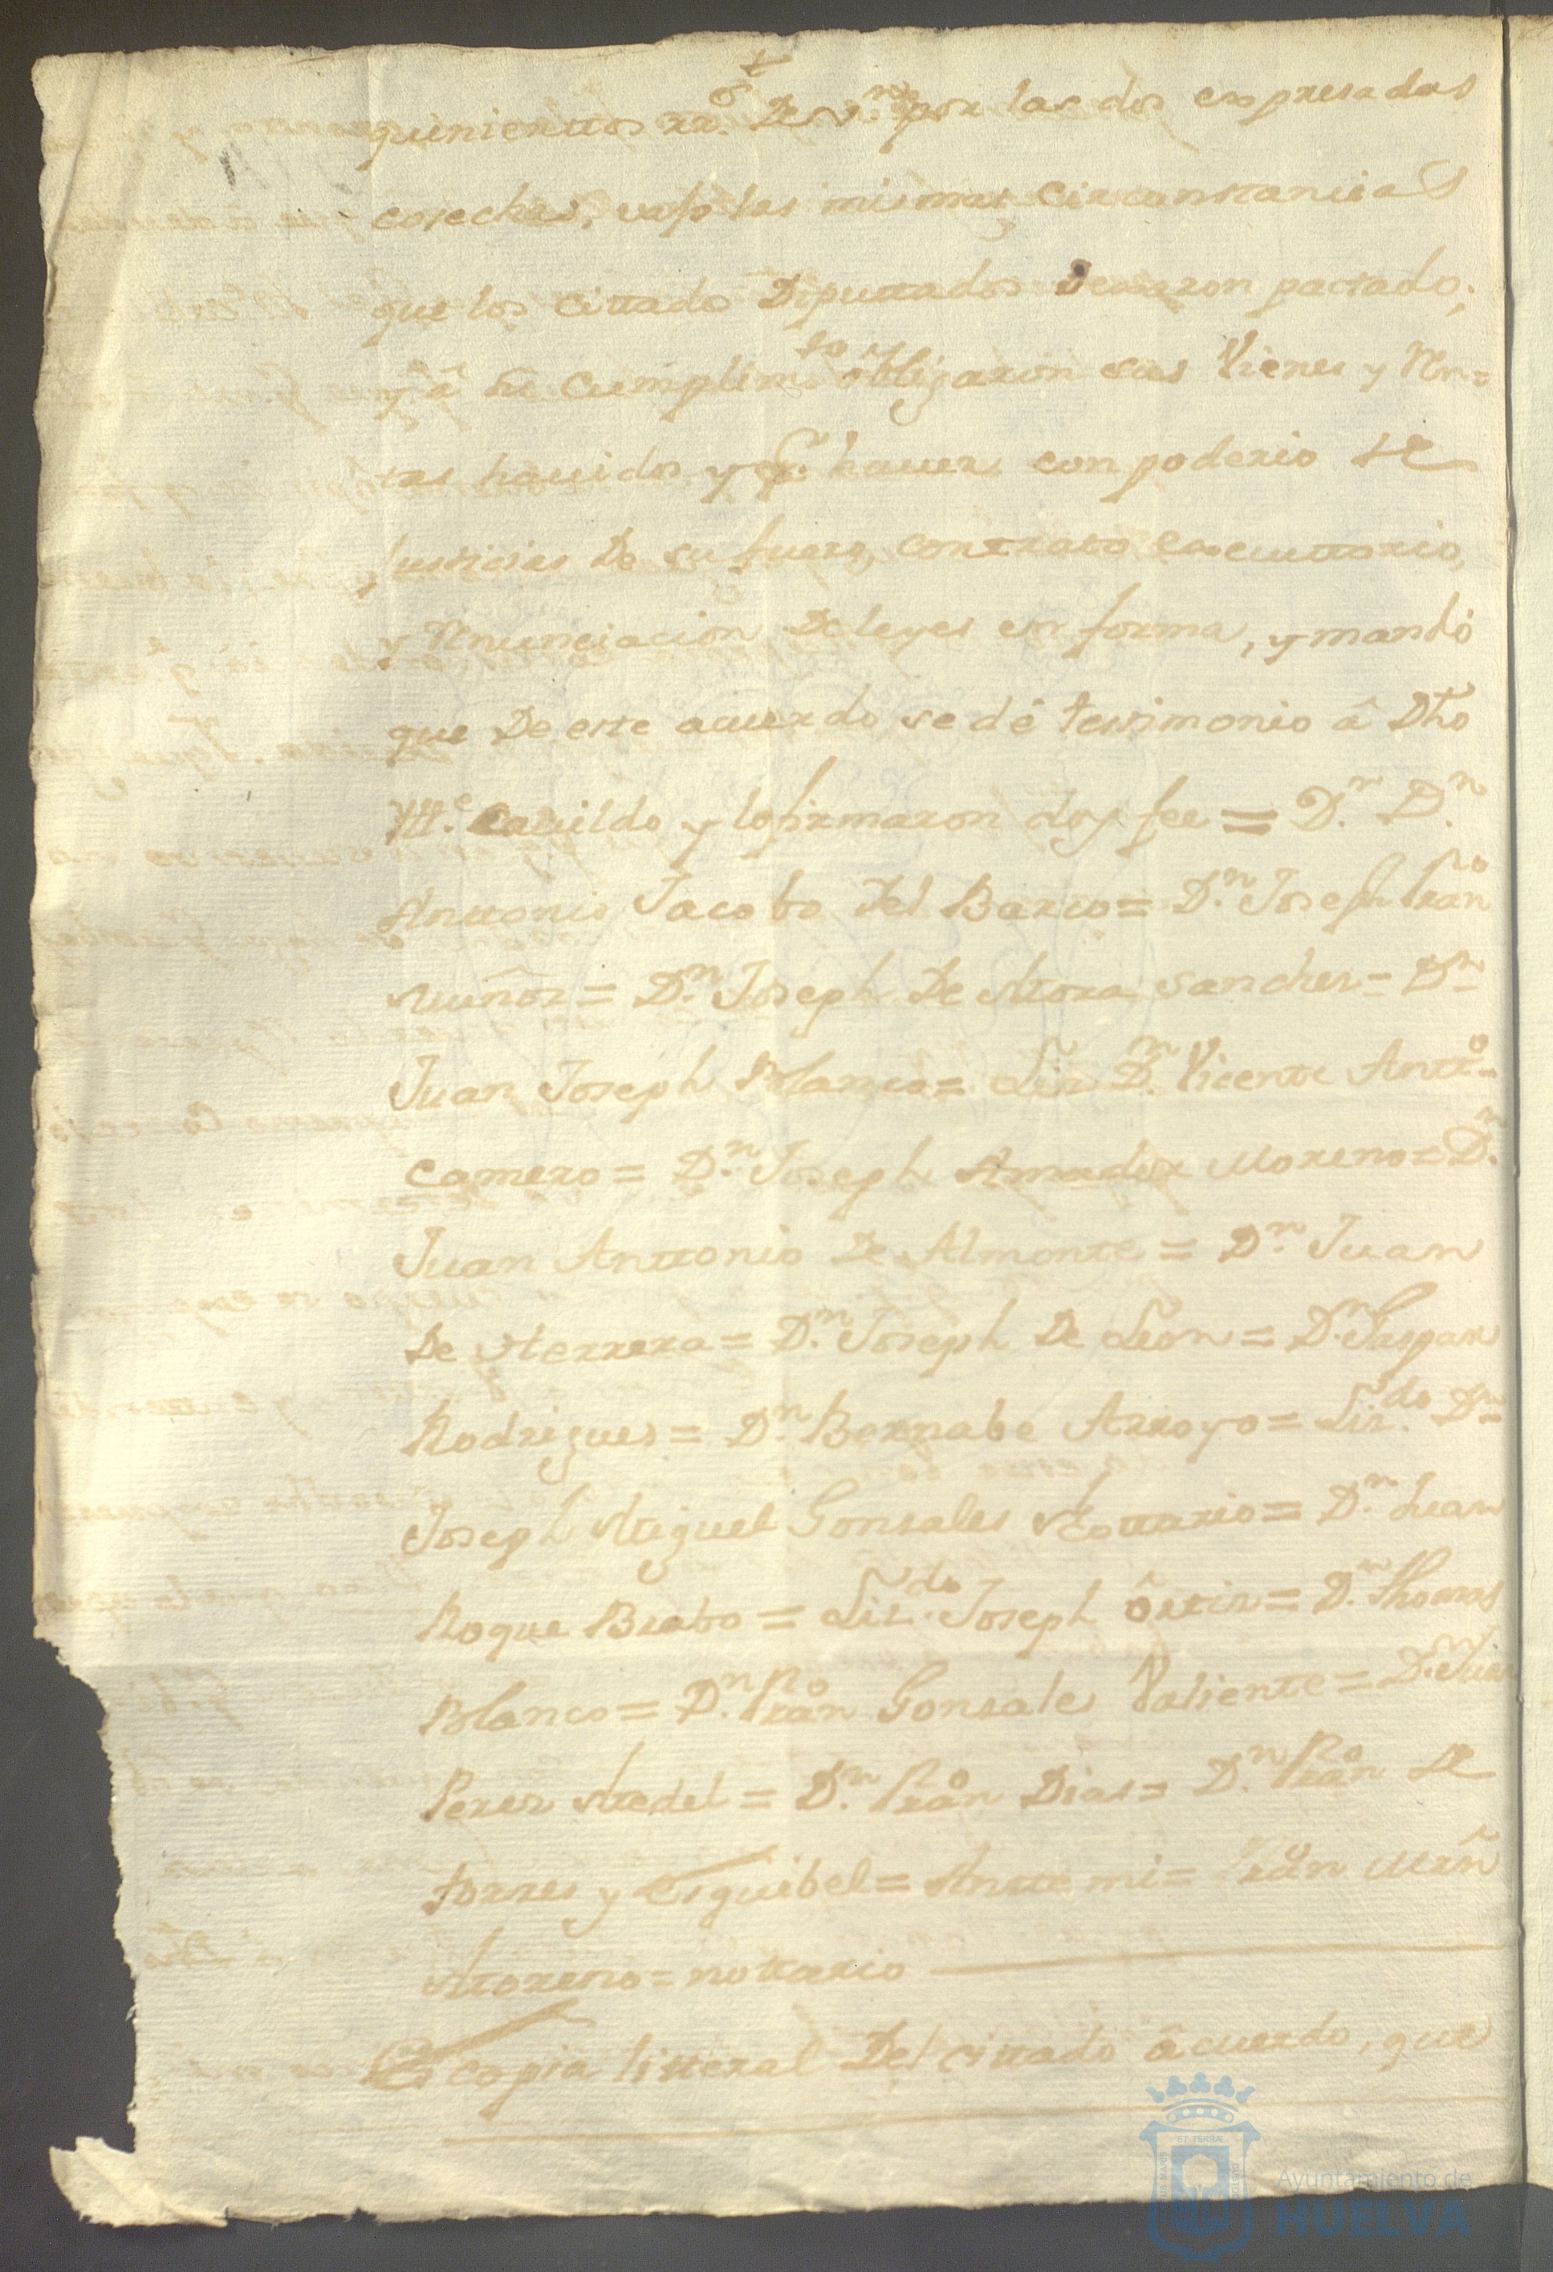 quinienttos rr.^s De v.^n por las dos expresadas
cosechas, vajo las mismas Circunstancias
que los Cittados Diputtados Dexaron pactado;
y â su Cumplim.^to obligaron sus Vienes y Rn=
tas hauidos y p.^r hauer con poderio de
Justicias De su fuero, contrato executtorio,
y Rnunciacion De leyes en forma, y mandó
que De este acuerdo se dé testimonio â Dho
Ytt.^e Cavildo y lo firmaron doy fee = D.^n D.^n
Anttonio Jacobo Del Barco = D.^n Joseph Fran^co
Muñoz = D.^n Joseph De Mora Sanches = D.^n
Juan Joseph Blanco = Liz.^do D.^n Vicente Antt.^o
Camero = D.^n Joseph Amador Moreno = D.^n
Juan Anttonio De Almonte = D.^n Juan
De Herrera = D.^n Joseph De Leon = D.^n Gaspar
Rodrigues = D.^n Bernabe Arroyo = Liz.^do D.^n
Joseph Miguel Gonsales Hottario = D.^n Juan
Roque Brabo = Liz.^do Joseph Ôrtiz = D.^n Thomas
Blanco = D.^n Fran^co Gonsales Valiente = D.^n
Perez Medel = D.^n Fran^co Dias = D.^n Fran^co de
torres y Esquibel = Antte mi = Fran^co Mrn
Moreno = nottario
Es copia litteral Del cittado âcuerdo, que
Ayuntamiento de
HUELVA